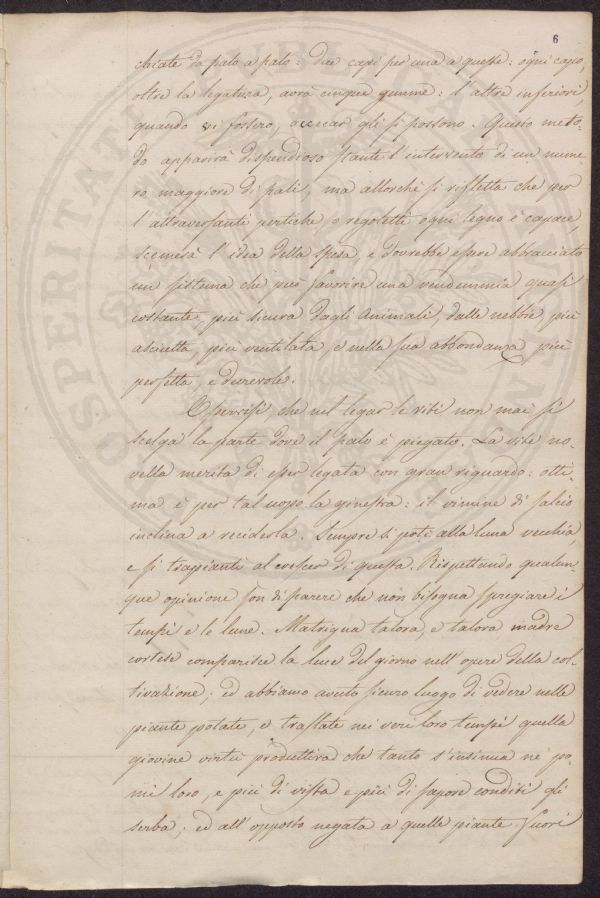 6
chiate da palo a palo: due capi per una a queste: ogni capo,
oltre la legatura, avrà cinque gemme: l'altre inferiori,
quando vi fossero, accecar gli si possono. Questo meto-
do apparirà dispendioso stante l'intervento di un nume-
ro maggiore di pali, ma allorchè si rifletta che per
l'attraversanti pertiche, o regoletti ogni legno è capace,
scemerà l'idea della spesa, e dovrebbe essere abbracciato
un sistema che può favorire una vendemmia quasi
costante, più sicura dagli Animali, dalle nebbie più
asciutta, più ventilata, e nella sua abbondanza più
perfetta, e durevole.
Osservisi, che nel legar le viti non mai si
scelga la parte dove il palo è piegato. La vite no-
vella merita di esser legata con gran riguardo: otti-
ma è per tal uopo la ginestra: il vimine di salcio
inclina a reciderla. Sempre si poti alla luna vecchia,
e si trapianti al crescer di questa. Rispettando qualun-
que opinione son di parere che non bisogna spregiare i
tempi e le lune. Matrigna talora, e talora madre
cortese comparisce la luce del giorno nell'opere della col-
tivazione; ed abbiamo avuto sicuro luogo di vedere nelle
piante potate, e traslate nei veri loro tempi quella
giovine virtù produttiva che tanto s'insinua ne' po-
mi loro, e più di vista e più di sapore conditi gli
serba; ed all'opposto negata a quelle piante fuori
PROSPERITATI PUBLICAE